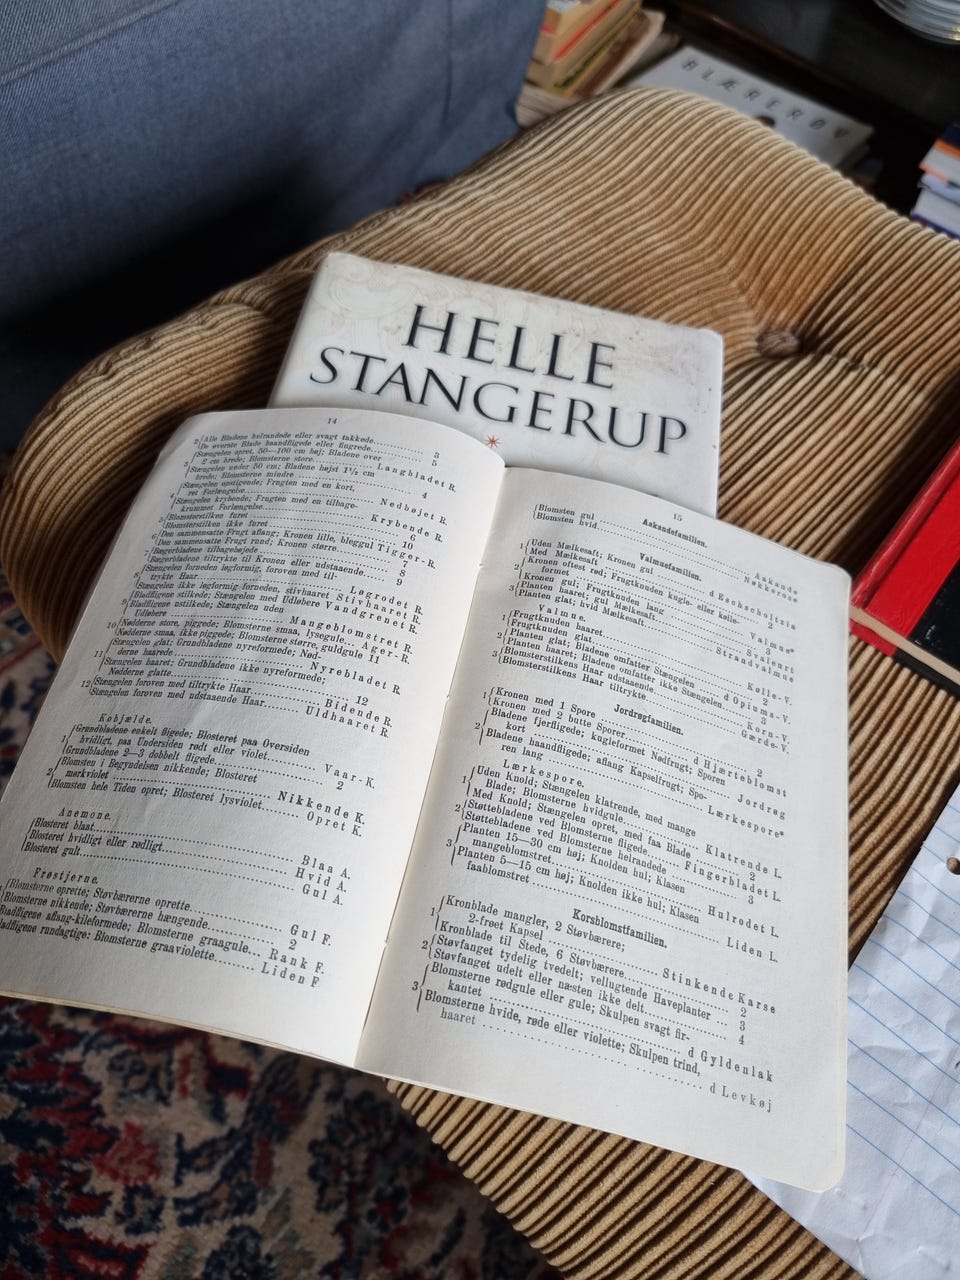 BLÆRERØV
HELLE
STANGERUP
14
2 Alle Bladene helrandede eller svagt takkede 3
De øverste Blade haandfligede eller fingrede 5
3 Stængelen opret, 50—100 cm høj; Bladene over
2 cm brede; Blomsterne store Langbladet R.
Stængelen under 50 cm; Bladene højst 1½ cm
brede; Blomsterne mindre 4
4 Stængelen opstigende; Frugten med en kort,
ret Forlængelse Nedbøjet R.
Stængelen krybende; Frugten med en tilbage-
krummet Forlængelse Krybende R.
5 Blomsterstilken furet 6
Blomsterstilken ikke furet 10
6 Den sammensatte Frugt aflang; Kronen lille, bleggul Tigger-R.
Den sammensatte Frugt rund; Kronen større 7
7 Bægerbladene tilbagebøjede 8
Bægerbladene tiltrykte til Kronen eller udstaaende 9
8 Stængelen forneden løgformig, foroven med til-
trykte Haar Løgrodet R.
Stængelen ikke løgformig forneden, stivhaaret Stivhaaret R.
9 Bladfligene stilkede; Stængelen med Udløbere Vandgrenet R.
Bladfligene ustilkede; Stængelen uden
Udløbere Mangeblomstret R.
10 Nødderne store, piggede; Blomsterne smaa, lysegule Ager-R.
Nødderne smaa, ikke piggede; Blomsterne større, guldgule 11
11 Stængelen glat; Grundbladene nyreformede; Nød-
derne haarede Nyrebladet R.
Stængelen haaret; Grundbladene ikke nyreformede;
Nødderne glatte 12
12 Stængelen foroven med tiltrykte Haar Bidende R.
Stængelen foroven med udstaaende Haar Uldhaaret R.
Kobjælde.
1 Grundbladene enkelt fligede; Blosteret paa Oversiden
hvidligt, paa Undersiden rødt eller violet Vaar-K.
Grundbladene 2—3 dobbelt fligede 2
2 Blomsten i Begyndelsen nikkende; Blosteret
mørkviolet Nikkende K.
Blomsten hele Tiden opret; Blosteret lysviolet Opret K.
Anemone.
Blosteret blaat Blaa A.
Blosteret hvidligt eller rødligt Hvid A.
Blosteret gult Gul A.
Frøstjerne.
Blomsterne oprette; Støvbærerne oprette Gul F.
Blomsterne nikkende; Støvbærerne hængende 2
Bladfligene aflang-kileformede; Blomsterne graagule Rank F.
Bladfligene rundagtige; Blomsterne graaviolette Liden F.
15
Aakandefamilien.
Blomsten gul Aakande
Blomsten hvid Nøkkerose
Valmuefamilien.
1 Uden Mælkesaft; Kronen gul d Eschscholtzia
Med Mælkesaft 2
2 Kronen oftest rød; Frugtknuden kugle- eller kølle-
formet Valmue*
Kronen gul; Frugtknuden lang 3
3 Planten haaret; gul Mælkesaft Svaleurt
Planten glat; hvid Mælkesaft Strandvalmue
Valmue.
1 Frugtknuden haaret Kølle-V.
Frugtknuden glat 2
2 Planten glat; Bladene omfatter Stængelen d Opiums-V.
Planten haaret; Bladene omfatter ikke Stængelen 3
3 Blomsterstilkens Haar udstaaende Korn-V.
Blomsterstilkens Haar tiltrykte Gærde-V.
Jordrøgfamilien.
1 Kronen med 1 Spore 2
Kronen med 2 butte Sporer d Hjærteblomst
2 Bladene fjerfligede; kugleformet Nødfrugt; Sporen
kort Jordrøg
Bladene haandfligede; aflang Kapselfrugt; Spo-
ren lang Lærkespore*
Lærkespore.
1 Uden Knold; Stængelen klatrende, med mange
Blade; Blomsterne hvidgule Klatrende L.
Med Knold; Stængelen opret, med faa Blade 2
2 Støttebladene ved Blomsterne fligede Fingerbladet L.
Støttebladene ved Blomsterne helrandede 3
3 Planten 15—30 cm høj; Knolden hul; Klasen
mangeblomstret Hulrodet L.
Planten 5—15 cm høj; Knolden ikke hul; Klasen
faablomstret Liden L.
Korsblomstfamilien.
1 Kronblade mangler, 2 Støvbærere;
2-frøet Kapsel Stinkende Karse
Kronblade til Stede, 6 Støvbærere 2
2 Støvfanget tydelig tvedelt; vellugtende Haveplanter 3
Støvfanget udelt eller næsten ikke delt 4
3 Blomsterne rødgule eller gule; Skulpen svagt fir-
kantet d Gyldenlak
Blomsterne hvide, røde eller violette; Skulpen trind,
haaret d Levkøj